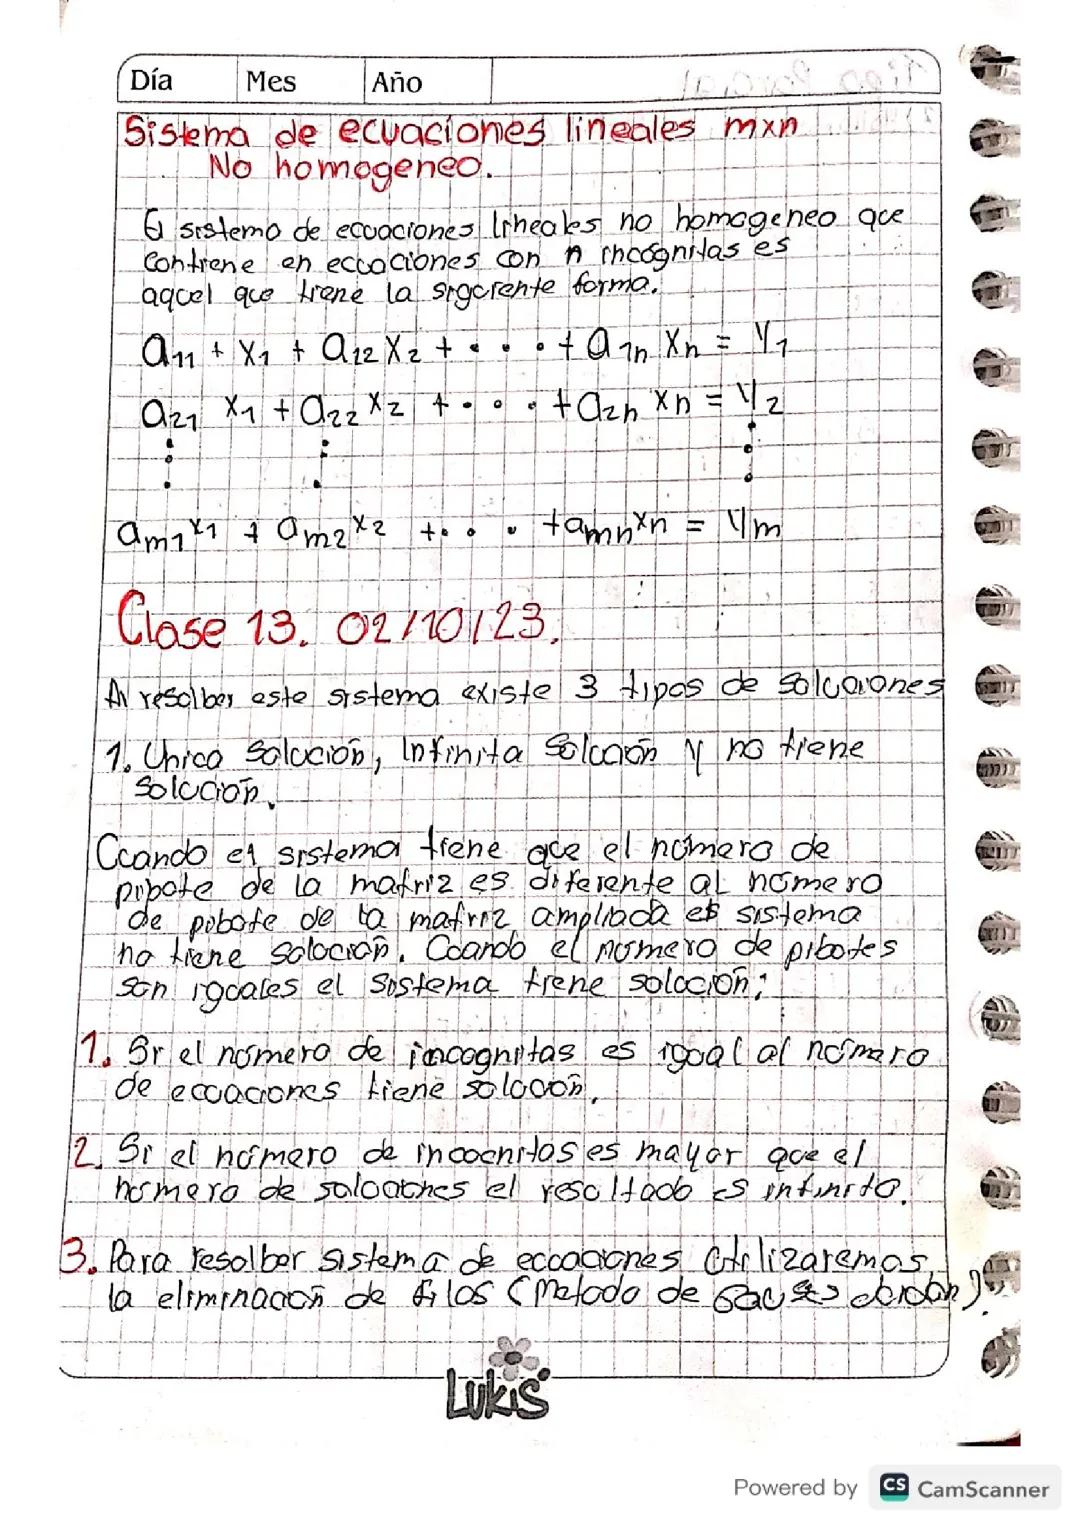 Día Mes Año
Sistema de ecuaciones lineales mxn
No homogeneo.
El sistemo de ecuaciones lineales no homogeneo que
contiene en ecuaciones con n incognitas es
aquel que tiene la siguiente forma.
a₁₁ + x₁ + a₁₂ x₂ + . . . + a₁n xn = y₁
a₂₁ x₁ + a₂₂ x₂ + . . . + a₂n xn = y₂
⋮ ⋮ ⋮
am₁x₁ + am₂x₂ + . . . + amnxn = ym
Clase 13. 02/10/23.
Al resolber este sistema existe 3 tipos de soluciones
1. Unica solución, Infinita solución y no tiene
solución.
Cuando el sistema tiene que el número de
pibote de la matriz es diferente al número
de pibote de la matriz ampliada el sistema
no tiene solución. Cuando el número de pibotes
son iguales el sistema tiene solución;
1. Si el número de incognitas es igual al número
de ecuaciones tiene solución.
2. Si el número de incocnitas es mayor que el
número de soluciones el resultado es infinito.
3. Para resolber sistema de ecuaciones utilizaremos
la eliminación de filas (Metodo de
Lukis
Powered by CS CamScanner